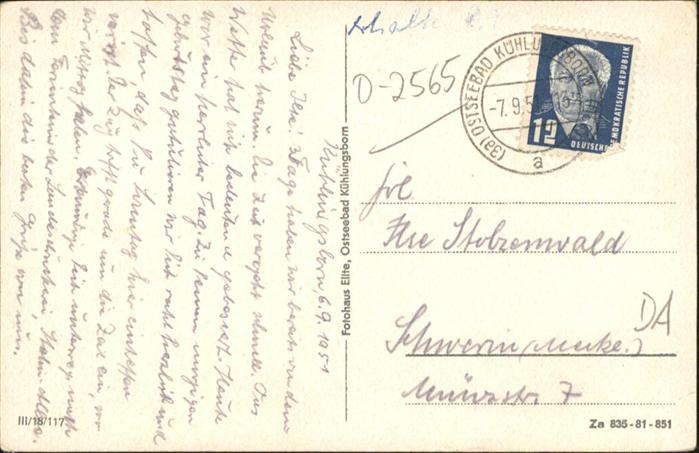 Kühlungsborn, 6.9.1951
Liebe Ilse! 3 Tage haben wir bereits von dem
Urlaub herum. Die Zeit vergeht schnell. Das
Wetter hat sich bedeutend gebessert. Heute
war ein herrlicher Tag. Zu Deinem morgigen
Geburtstag gratulieren wir Dir recht herzlich und
hoffen daß Du Sonntag hier eintreffen
wirst. Der Zug trifft grade um die Zeit ein, wo
wir Mittag haben. Erkundige Dich unterwegs nach
dem Ferienheim der
Bis dahin die besten Grüße von uns.
III/18/117
Fotohaus Elite, Ostseebad Kühlungsborn
erhalten 8.9.
D-2565
(3a) OSTSEEBAD KÜHLUNGSBORN
-7.9.5
a
12
DEUTSCHE DEMOKRATISCHE REPUBLIK
Frl.
Ilse Stolzenwald
Schwerin (Meckl.)
DA
Münzstr. 7
Za 835-81-851